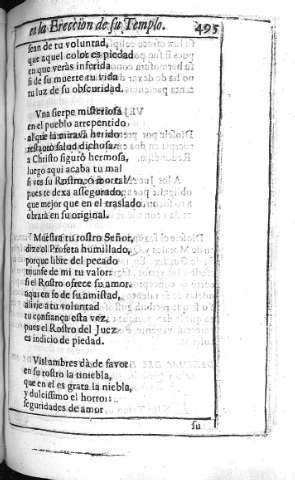 en la Ereccion de su Templo. 495
sean de tu voluntad,
que aquel color es piedad
en que veràs
si de su muerte tu vida
tu luz de su obscuridad.
Vna sierpe misteriosa
en el pueblo arrepentido,
al que la mirava herido
salud dichosa.
a Christo figurò hermosa,
luego aqui acaba tu mal
si ves su Rostro, ò mortal
pues te dexa assegurado,
que mejor que en el traslado
obrarà en su original.
Muestra tu rostro Señor,
dize el Profeta humillado,
porque libre del pecado
triunfe de mi tu valor:
si el Rostro ofrece su amor
aqui en fe de su amistad,
alivie a tu voluntad
tu confiança esta vez,
pues el Rostro del Juez
es indicio de piedad.
Vislumbres dà de favor
en su rostro la tiniebla,
que en el es grata la niebla,
y dulcissimo el horror:
seguridades de amor
su